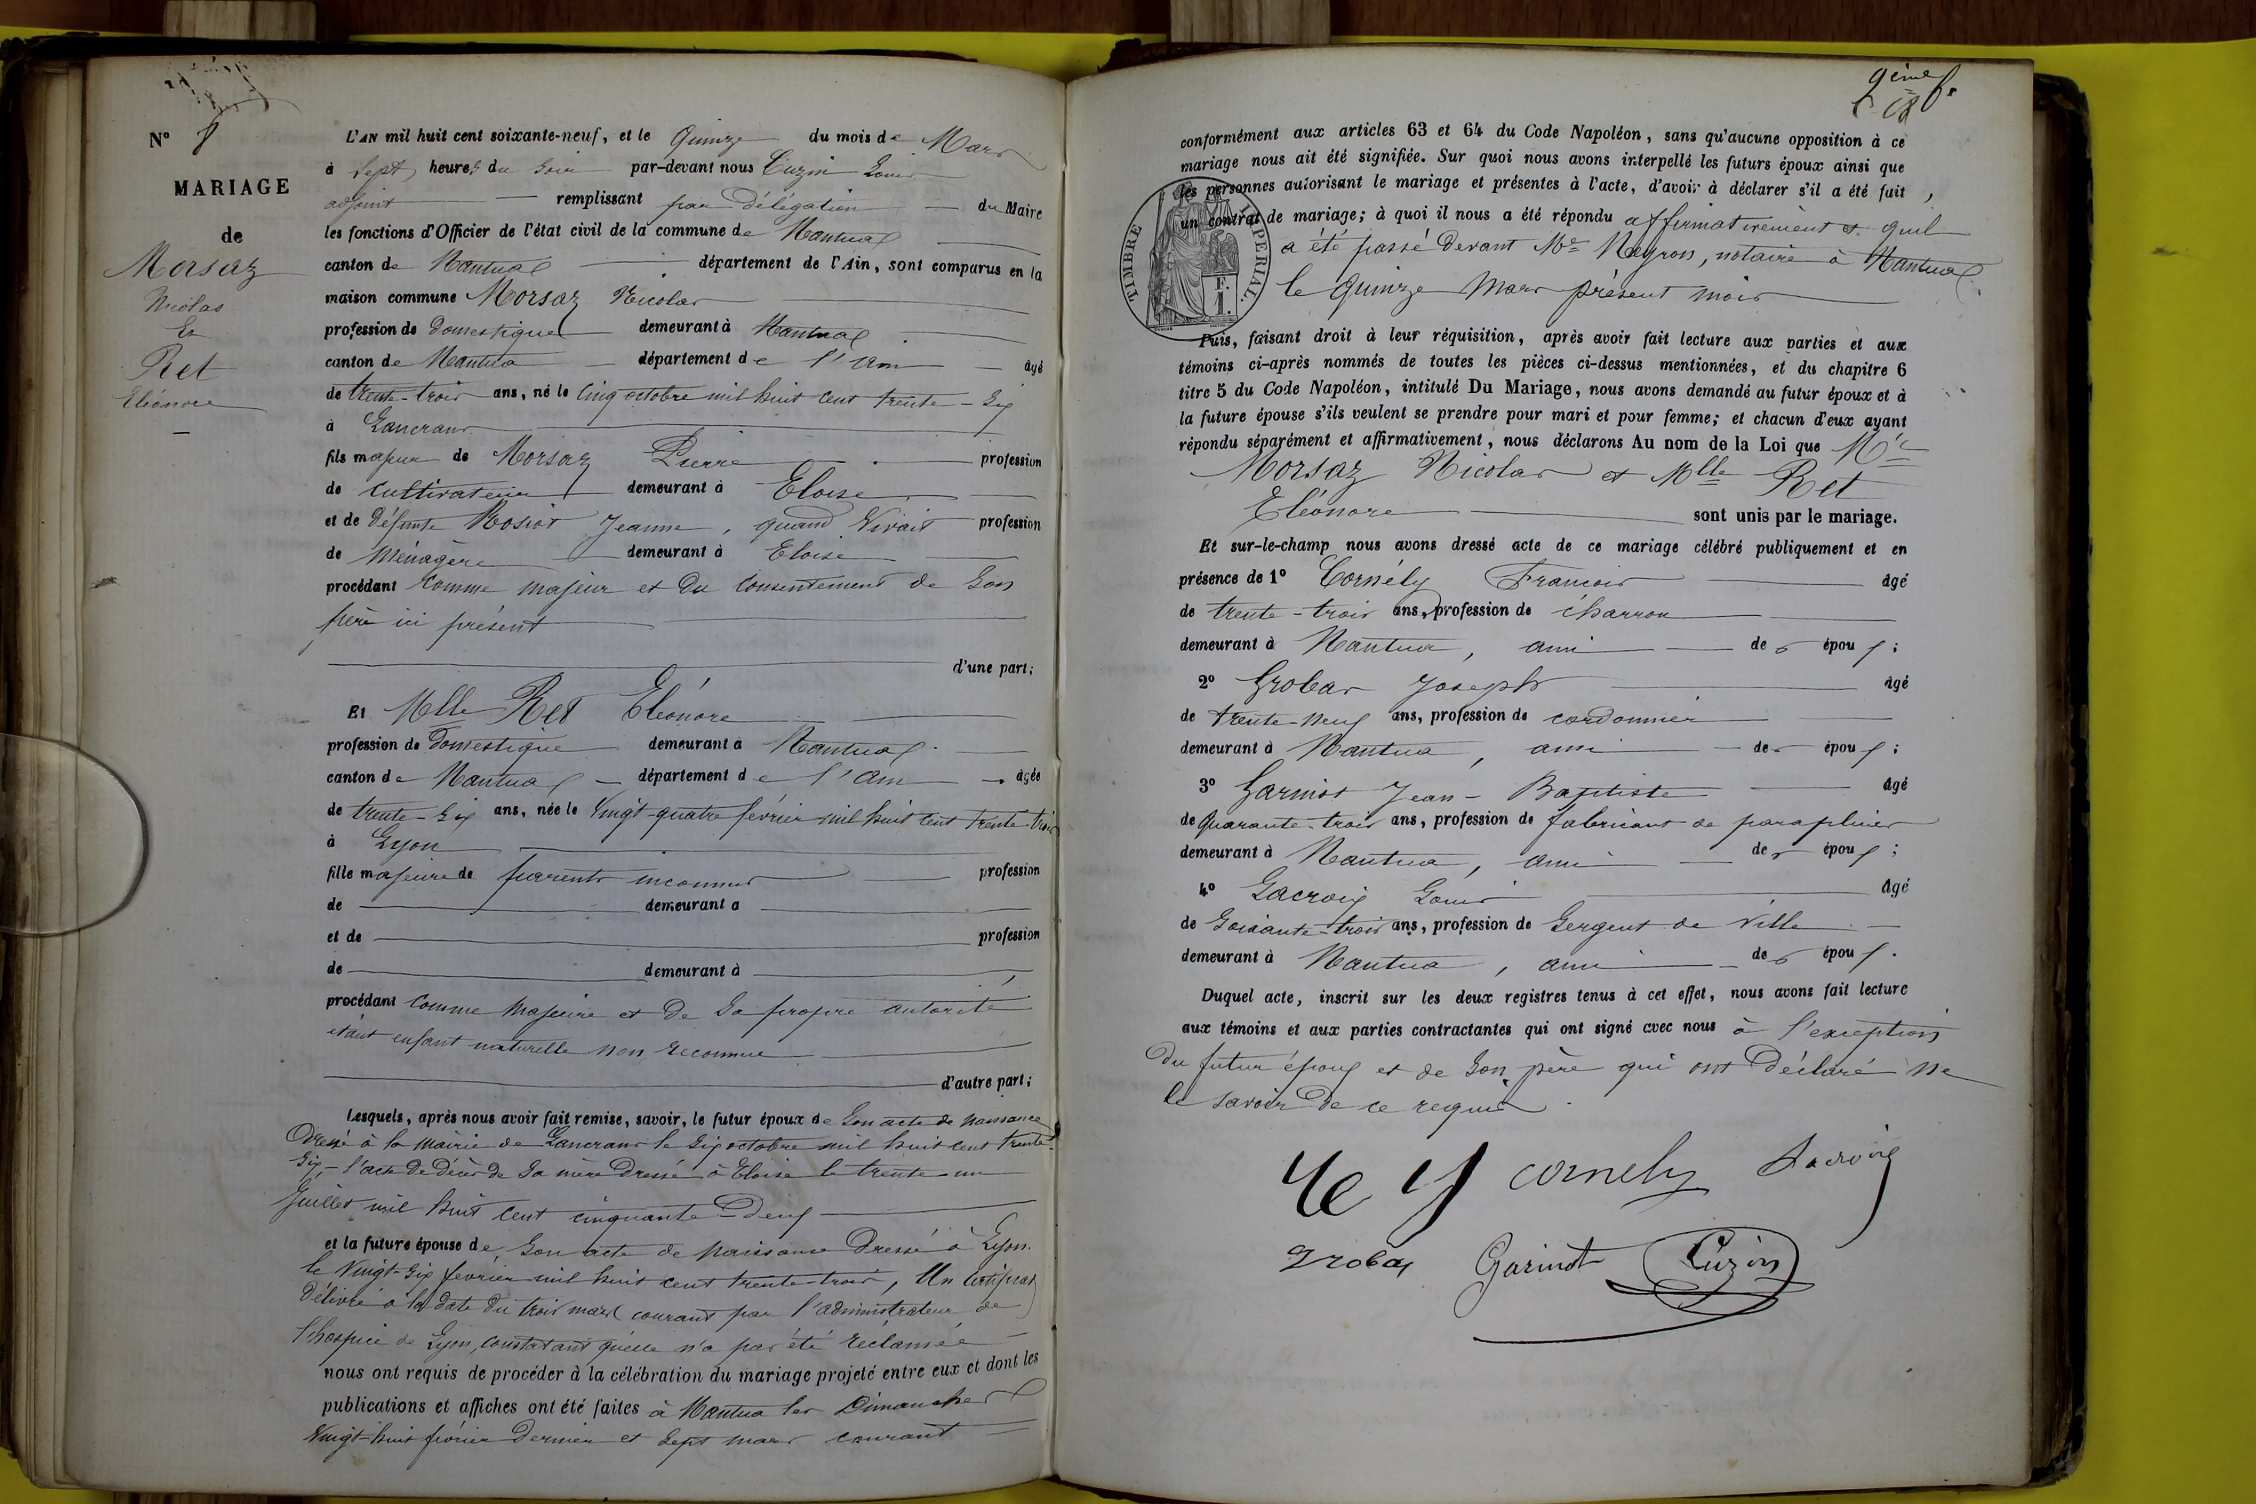 N° 8
MARIAGE
de
Morsaz
Nicolas
Et
Ret
Eléonore
L'AN mil huit cent soixante-neuf, et le Quinze du mois de Mars
à Sept heures du Soir par-devant nous Cuzin Louis
adjoint remplissant par Délégation du Maire
les fonctions d'Officier de l'état civil de la commune de Nantua
canton de Nantua département de l'Ain, sont comparus en la
maison commune Morsaz Nicolas
profession de domestique demeurant à Nantua
canton de Nantua département de l'Ain âgé
de trente-trois ans, né le Cinq octobre mil huit cent trente-Six
à Lancrans
fils majeur de Morsaz Pierre profession
de cultivateur demeurant à Eloise
et de défunte Rosset Jeanne, quand Vivait profession
de Ménagère demeurant à Eloise
procédant comme majeur et du consentement de Son
père ici présent
d'une part;
Et Melle Ret Eléonore
profession de Domestique demeurant à Nantua
canton de Nantua département de l'Ain âgée
de trente-Six ans, née le Vingt-quatre février mil huit cent trente-trois
à Lyon
fille majeure de parents inconnus profession
de demeurant à
et de profession
de demeurant à
procédant comme Majeure et de Sa propre autorité
étant enfant naturelle non reconnue
d'autre part;
Lesquels, après nous avoir fait remise, savoir, le futur époux de Son acte de naissance
Dressé à la Mairie de Lancrans le Six octobre mil huit cent trente-
Six, - l'acte de Décès de Sa mère Dressé à Eloise le trente-un
Juillet mil huit cent cinquante-Deux
et la future épouse de Son acte de Naissance Dressé à Lyon.
le Vingt-Six février mil huit cent trente-trois, Un Certificat
Délivré à la date du trois mars courant par l'administrateur de
l'hospice de Lyon, constatant qu'elle n'a pas été réclamée
nous ont requis de procéder à la célébration du mariage projeté entre eux et dont les
publications et affiches ont été faites à Nantua les Dimanches
Vingt-huit février Dernier et Sept mars courant
2ème f.
conformément aux articles 63 et 64 du Code Napoléon, sans qu'aucune opposition à ce
mariage nous ait été signifiée. Sur quoi nous avons interpellé les futurs époux ainsi que
les personnes autorisant le mariage et présentes à l'acte, d'avoir à déclarer s'il a été fait,
un contrat de mariage; à quoi il nous a été répondu affirmativement et quil
a été passé Devant Me Neyron, notaire à Nantua
le Quinze Mars présent mois
TIMBRE IMPERIAL.
F.
1.
Puis, faisant droit à leur réquisition, après avoir fait lecture aux parties et aux
témoins ci-après nommés de toutes les pièces ci-dessus mentionnées, et du chapitre 6
titre 5 du Code Napoléon, intitulé Du Mariage, nous avons demandé au futur époux et à
la future épouse s'ils veulent se prendre pour mari et pour femme; et chacun d'eux ayant
répondu séparément et affirmativement, nous déclarons Au nom de la Loi que Mr
Morsaz Nicolas et Mlle Ret
Eléonore sont unis par le mariage.
Et sur-le-champ nous avons dressé acte de ce mariage célébré publiquement et en
présence de 1° Cornély François âgé
de trente-trois ans, profession de charron
demeurant à Nantua, ami des époux;
2° Grobas Joseph âgé
de trente-neuf ans, profession de cordonnier
demeurant à Nantua, ami des époux;
3° Garinot Jean-Baptiste âgé
de Quarante-trois ans, profession de fabricant de parapluies
demeurant à Nantua, ami des époux;
4° Lacroix Louis âgé
de Soixante-trois ans, profession de Sergent de Ville
demeurant à Nantua, ami des époux.
Duquel acte, inscrit sur les deux registres tenus à cet effet, nous avons fait lecture
aux témoins et aux parties contractantes qui ont signé avec nous à l'exception
du futur époux et de Son père qui ont Déclaré Ne
le savoir De ce requis.
cornely Lacroix
Grobas Garinot Cuzin